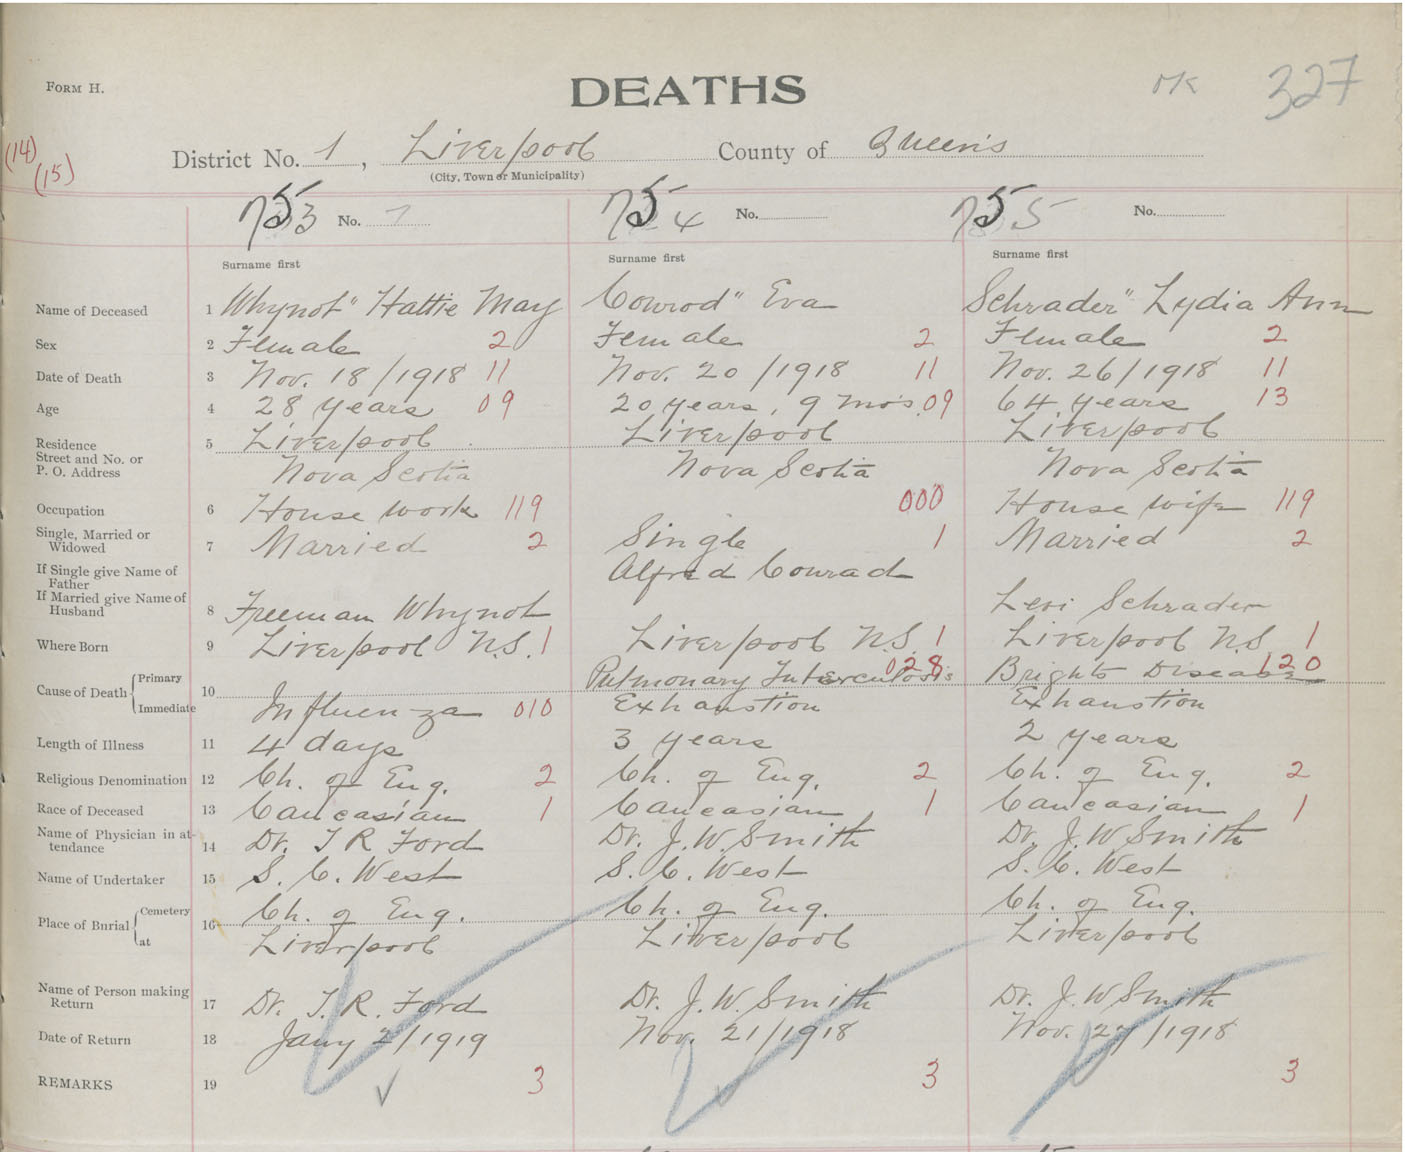 FORM H.
DEATHS
OK 327
(14)
(15)
District No. 1, Liverpool County of Queens
(City, Town or Municipality)
753 No. 7 754 No. 755 No.
Surname first Surname first Surname first
Name of Deceased 1 Whynot" Hattie May Conrod" Eva Schrader" Lydia Ann
Sex 2 Female 2 Female 2 Female 2
Date of Death 3 Nov. 18/1918 11 Nov. 20/1918 11 Nov. 26/1918 11
Age 4 28 years 09 20 years, 9 mos. 09 64 years 13
Residence 5 Liverpool Liverpool Liverpool
Street and No. or
P. O. Address Nova Scotia Nova Scotia Nova Scotia
Occupation 6 House work 119 000 House wife 119
Single, Married or
Widowed 7 Married 2 Single 1 Married 2
If Single give Name of
Father Alfred Conrad
If Married give Name of
Husband 8 Freeman Whynot Levi Schrader
Where Born 9 Liverpool N.S. 1 Liverpool N.S. 1 Liverpool N.S. 1
Cause of Death Primary 10 Pulmonary Tuberculosis 028 Brights Disease 120
Immediate Influenza 010 Exhaustion Exhaustion
Length of Illness 11 4 days 3 years 2 years
Religious Denomination 12 Ch. of Eng. 2 Ch. of Eng. 2 Ch. of Eng. 2
Race of Deceased 13 Caucasian 1 Caucasian 1 Caucasian 1
Name of Physician in at-
tendance 14 Dr. T R Ford Dr. J. W. Smith Dr. J. W Smith
Name of Undertaker 15 S. C. West S. C. West S. C. West
Place of Burial Cemetery 16 Ch. of Eng. Ch. of Eng. Ch. of Eng.
at Liverpool Liverpool Liverpool
Name of Person making
Return 17 Dr. T. R. Ford Dr. J. W. Smith Dr. J. W Smith
Date of Return 18 Jany 2/1919 Nov. 21/1918 Nov. 27/1918
REMARKS 19 3 3 3